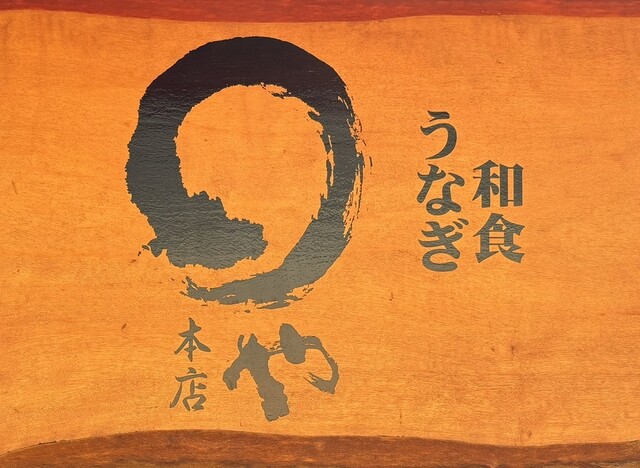 和食
うなぎ
○や
本店